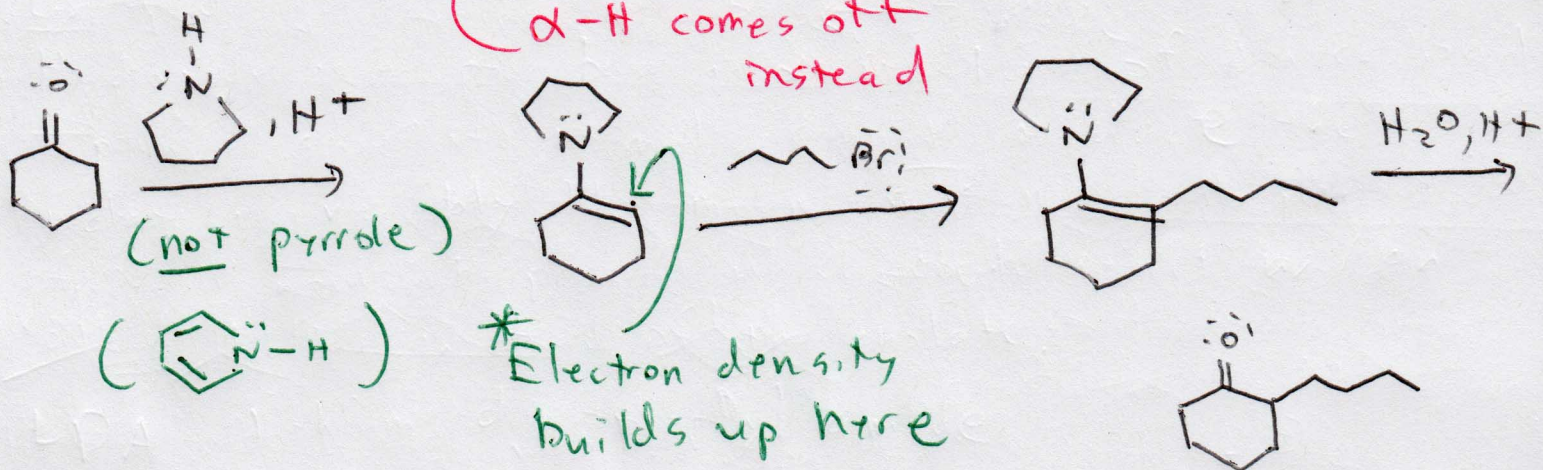 α-H comes off
instead
H
N
:O:
, H+
(not pyrrole)
(N-H)
N
Br
N
H2O, H+
*Electron density
builds up here
:O: